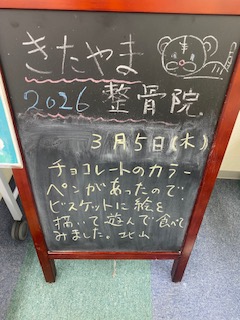 きたやま
2026 整骨院
3月5日(木)
チョコレートのカラー
ペンがあったので、
ビスケットに絵を
描いて遊んで食べて
みました。北山